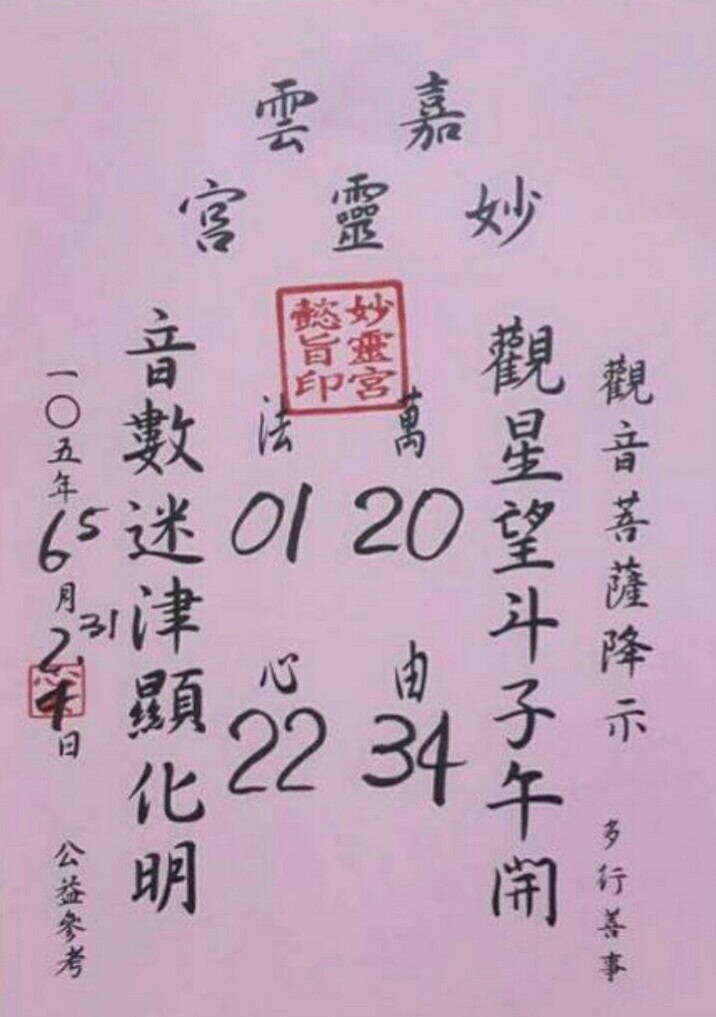 嘉雲
妙靈宮
妙靈宮
懿旨印
觀音菩薩降示
多行善事
觀星望斗子午開
萬法
20 01
由心
34 22
音數迷津顯化明
一〇五年6 5月2 31日
公益參考